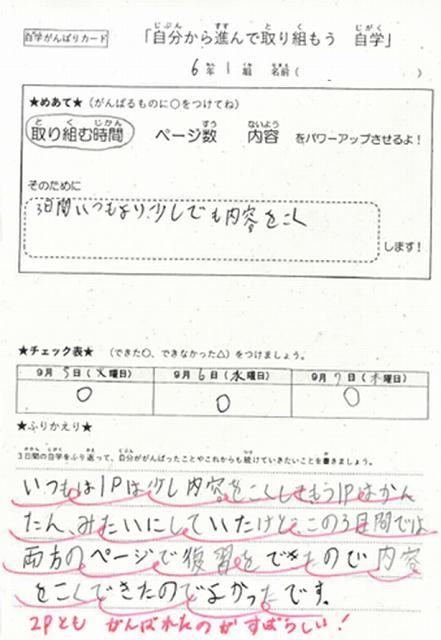 自学がんばりカード 「自分から進んで取り組もう 自学」
6年1組 名前( )
★めあて★(がんばるものに○をつけてね)
取り組む時間 ページ数 内容 をパワーアップさせるよ!
そのために
3日間いつもより、少しでも内容をこく
します!
★チェック表★ (できた○、できなかった△)をつけましょう。
9月5日(火曜日) 9月6日(水曜日) 9月7日(木曜日)
○ ○ ○
★ふりかえり★
3日間の自学をふり返って、自分ががんばったことやこれからも続けていきたいことを書きましょう。
いつもは1Pは少し内容をこくしせ、もう1Pはかん
たん、みたいにしていたけど、この3日間では
両方のページで復習をできたので内容
をこくできたのでよかったです。
2Pとも がんばれたのがすばらしい!